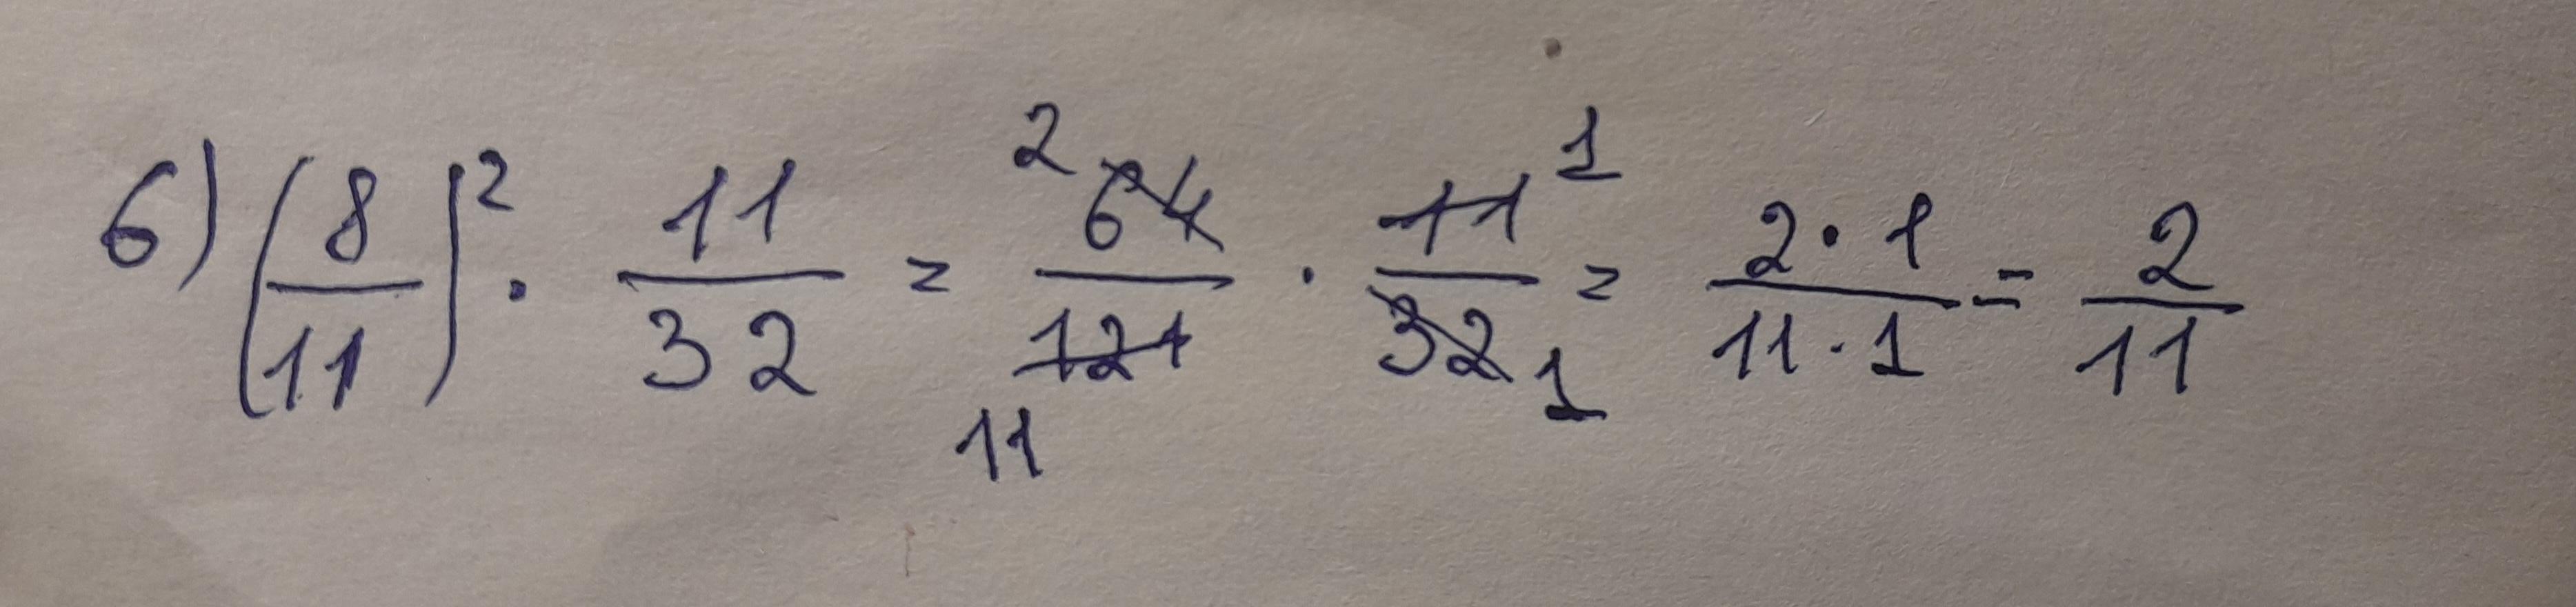 6) (8/11)² · 11/32 = ²6̶4̶/1̶2̶1̶₁₁ · 1̶1̶¹/3̶2̶₁ = 2·1/11·1 = 2/11